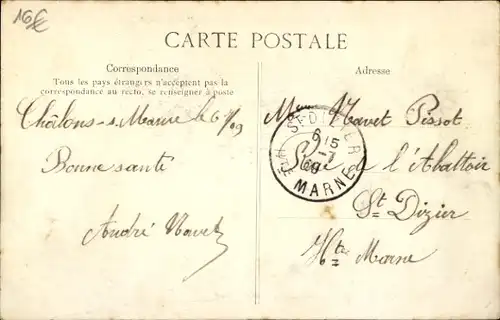 16€
CARTE POSTALE
Correspondance
Tous les pays étrangers n'acceptent pas la
correspondance au recto, se renseigner à poste
Châlons-s-Marne le 6/7/09
Bonne santé
André Navet
Adresse
Mr Navet Pissot
Rue de l'Abattoir
St Dizier
Hte Marne
ST DIZIER
6 15
-7
09
HTE MARNE